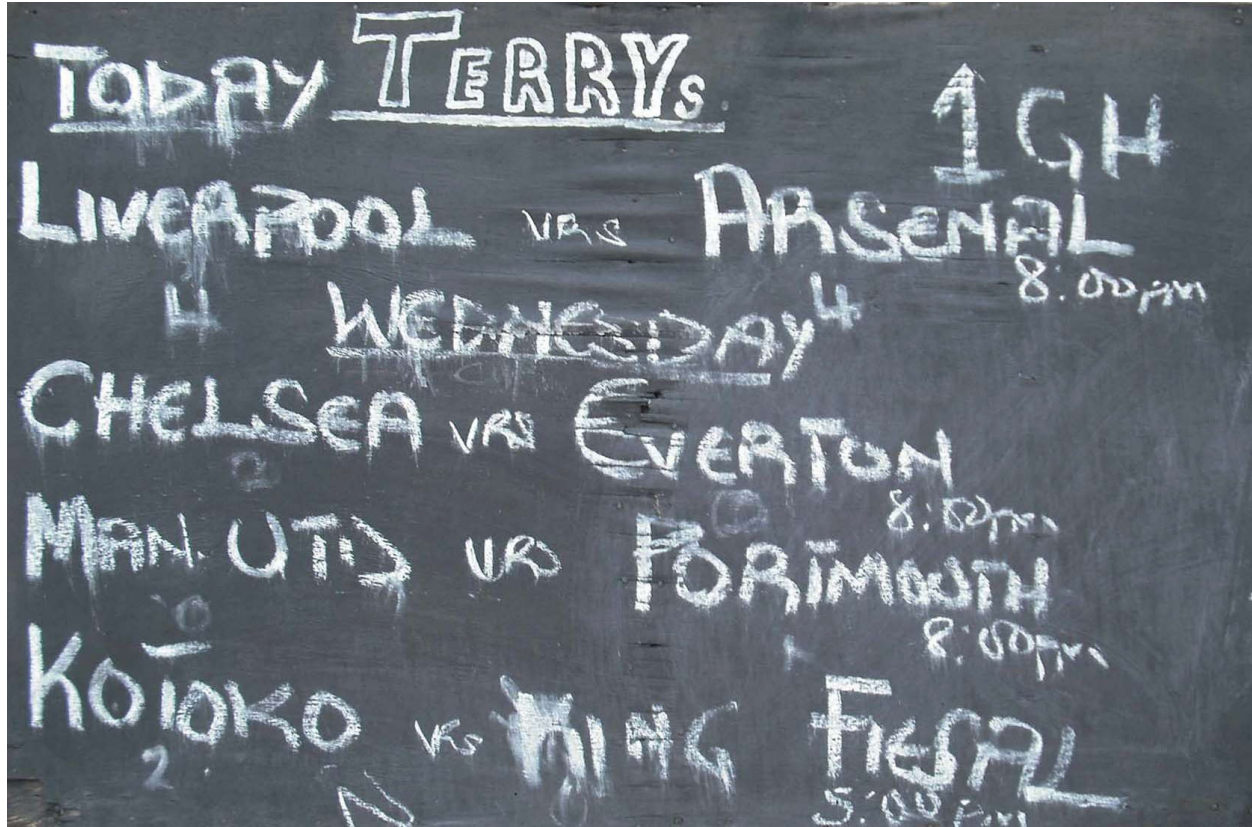 TODAY TERRYs
1GH
LIVERPOOL VRS ARSENAL
8:00pm
4 4
WEDNESDAY
CHELSEA VRS EVERTON
0 0
8:00pm
MAN. UTD VRS PORTMOUTH
0
8:00pm
KOTOKO VRS KING FIESAL
2 0
5:00pm
N